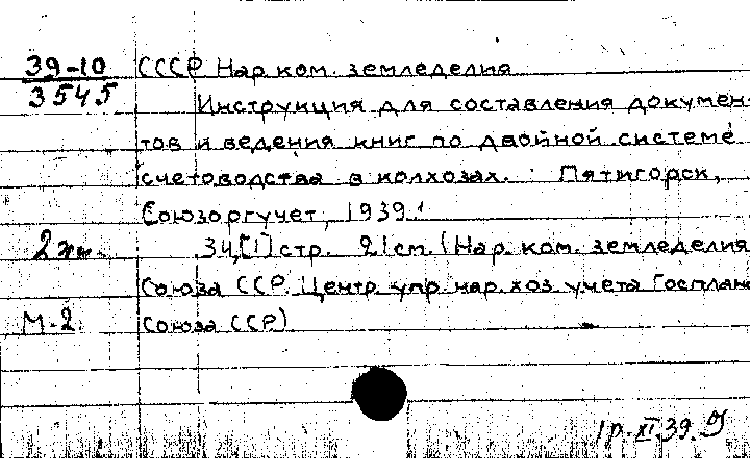 39-10
3545
СССР Нар. ком. земледелия
Инструкция для составления докумен-
тов и ведения книг по двойной системе
счетоводства в колхозах. Пятигорск,
Союзоргучет, 1939.
2 экз.
34,[1] стр. 21 см. (Нар. ком. земледелия
Союза ССР. Центр. упр. нар. хоз. учета Госплана
М-2
Союза ССР)
1 р. XI.39.